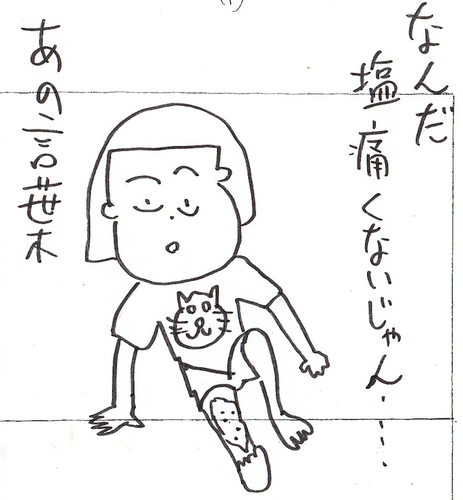 なんだ
塩痛くないじゃん・・・・
あの言葉